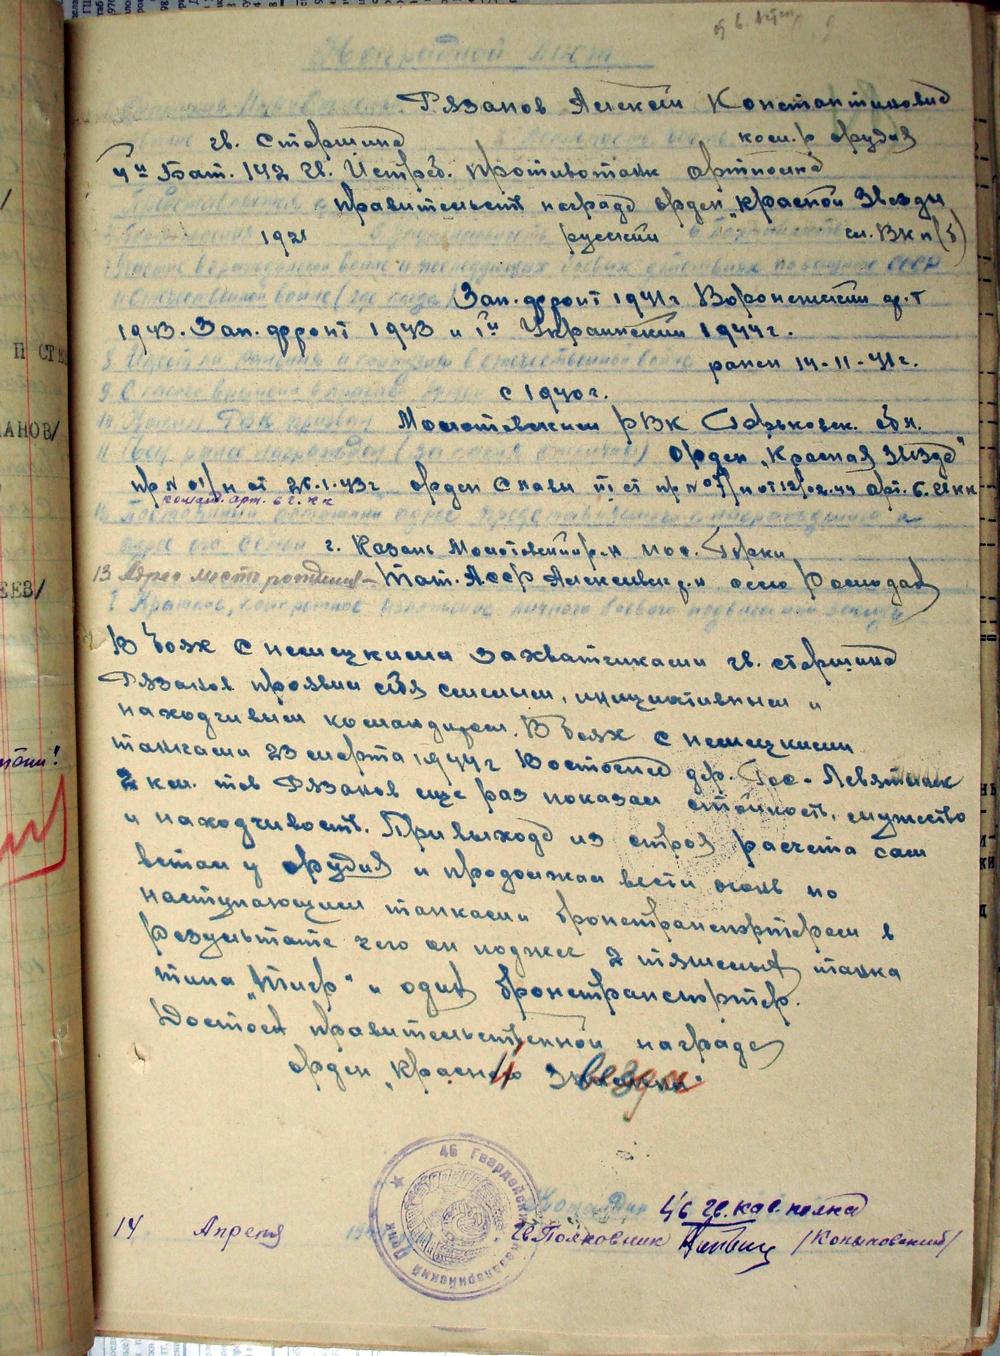 Наградной лист
Рязанов Алексей Константинович
гв. Старшина ком-р орудия
4й Бат. 142 гв. Истреб. противотанк артполка
Представляется к правительств награде орден „Красной Звезды
1921 русский чл. ВКп(б)
7 Участие в гражданской войне и последующих боевых действиях по защите СССР
и отечественной войне (где когда) Зап. фронт 1941г Воронежский фр-т
1943. Зап. фронт 1943 и 1й Украинский 1944г.
8 Имеет ли ранения и контузии в отечественной войне ранен 14-11-41г.
9 С какого времени в Красной Армии с 1940г.
10 Каким РВК призван Молотовским РВК Горьковск. обл.
11 Чем ранее награжден (за какие отличия) Орден „Красная Звезда"
пр N 01/н от 26.1.43г орден Славы III ст пр N от 12/02.44 арт. 6. гв кк
команд. арт. 6 г. кк
12 Постоянный домашний адрес представляемого к награждению и
адрес его семьи г. Казань Молотовский р-н пос. Горки
13 Адрес место рождения – Тат. АССР Алексеевск р-н село
I Краткое, конкретное изложение личного боевого подвига или заслуг
В боях с немецкими захватчиками гв. старшина
Рязанов проявил себя смелым, инициативным и
находчивым командиром. В боях с немецкими
танками 23 марта 1944г Восточнее дер.
2 км. тов Рязанов еще раз показал стойкость, мужество
и находчивость. При выходе из строя расчета сам
встал у орудия и продолжал вести огонь по
наступающим танкам и бронетранспортерам в
результате чего он поджег 2 тяжелых танка
типа „Тигр" и один бронетранспортер.
Достоен правительственной награде
орден „Красной Звезды
Командир 46 гв. кав. полка
14 Апреля 194 гв. Полковник /Копыловский/
46 Гвардейский Кавалерийский Полк